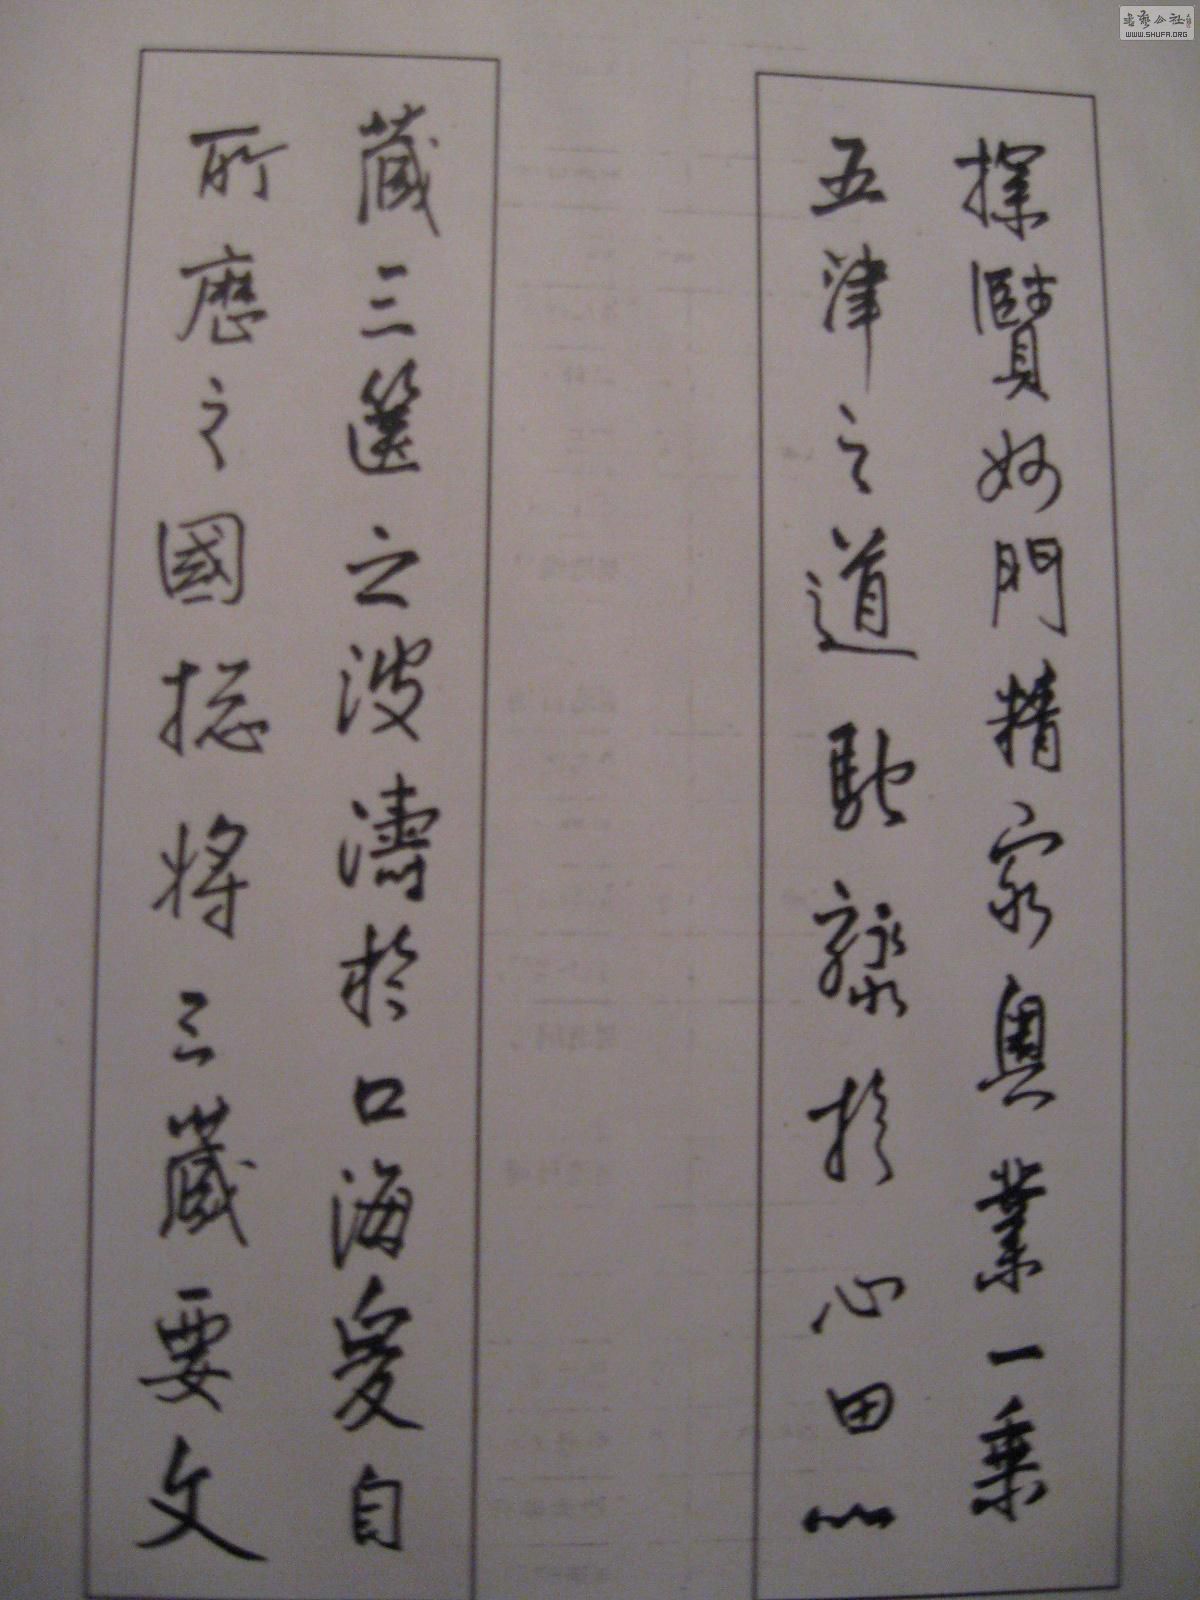 探賾妙門精窮奧業一乘
五律之道馳驟於心田八
藏三篋之波濤於口海爰自
所歷之國揔將三藏要文
書藝公社
WWW.SHUFA.ORG